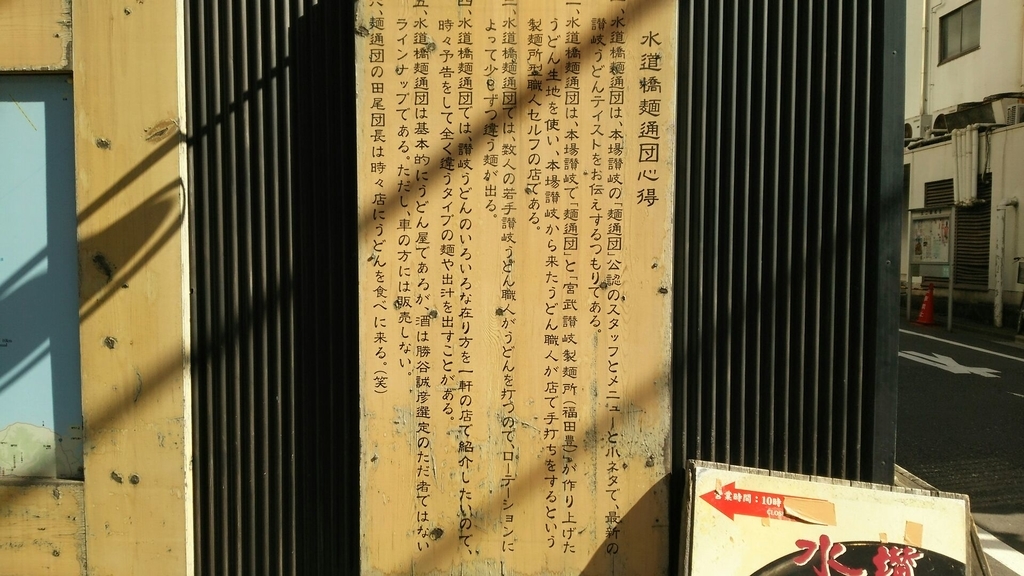 水道橋麺通団心得
一、水道橋麺通団は、本場讃岐の「麺通団」公認のスタッフとメニューと小ネタで、最新の
讃岐うどんテイストをお伝えするつもりである。
二、水道橋麺通団は、本場讃岐で「麺通団」と「宮武讃岐製麺所(福田豊)」が作り上げた
うどん生地を使い、本場讃岐から来たうどん職人が店で手打ちをするという
製麺所型職人セルフの店である。
三、水道橋麺通団では、数人の若手讃岐うどん職人がうどんを打つので、ローテーションに
よって少しずつ違う麺が出る。
四、水道橋麺通団では、讃岐うどんのいろいろな在り方を一軒の店で紹介したいので、
時々予告をして全く違うタイプの麺や出汁を出すことがある。
五、水道橋麺通団は基本的にうどん屋であるが、酒は勝谷誠彦選定のただ者ではない
ラインナップである。ただし、車の方には販売しない。
六、麺通団の田尾団長は時々店にうどんを食べに来る。(笑)
営業時間:10時
水道